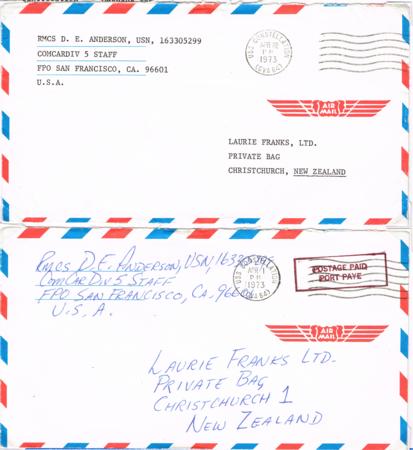 RMCS D. E. ANDERSON, USN, 163305299
COMCARDIV 5 STAFF
FPO SAN FRANCISCO, CA. 96601
U.S.A.
USS CONSTELLATION
PM
1973
(CVA 64)
AIR
MAIL
LAURIE FRANKS, LTD.
PRIVATE BAG
CHRISTCHURCH, NEW ZEALAND
RMCS D.E. ANDERSON, USN,
COMCARDIV 5 STAFF
FPO SAN FRANCISCO, CA.
U.S.A.
USS CONSTELLATION
1973
(CVA 64)
POSTAGE PAID
PORT PAYE
AIR
MAIL
LAURIE FRANKS LTD.
PRIVATE BAG
CHRISTCHURCH 1
NEW ZEALAND